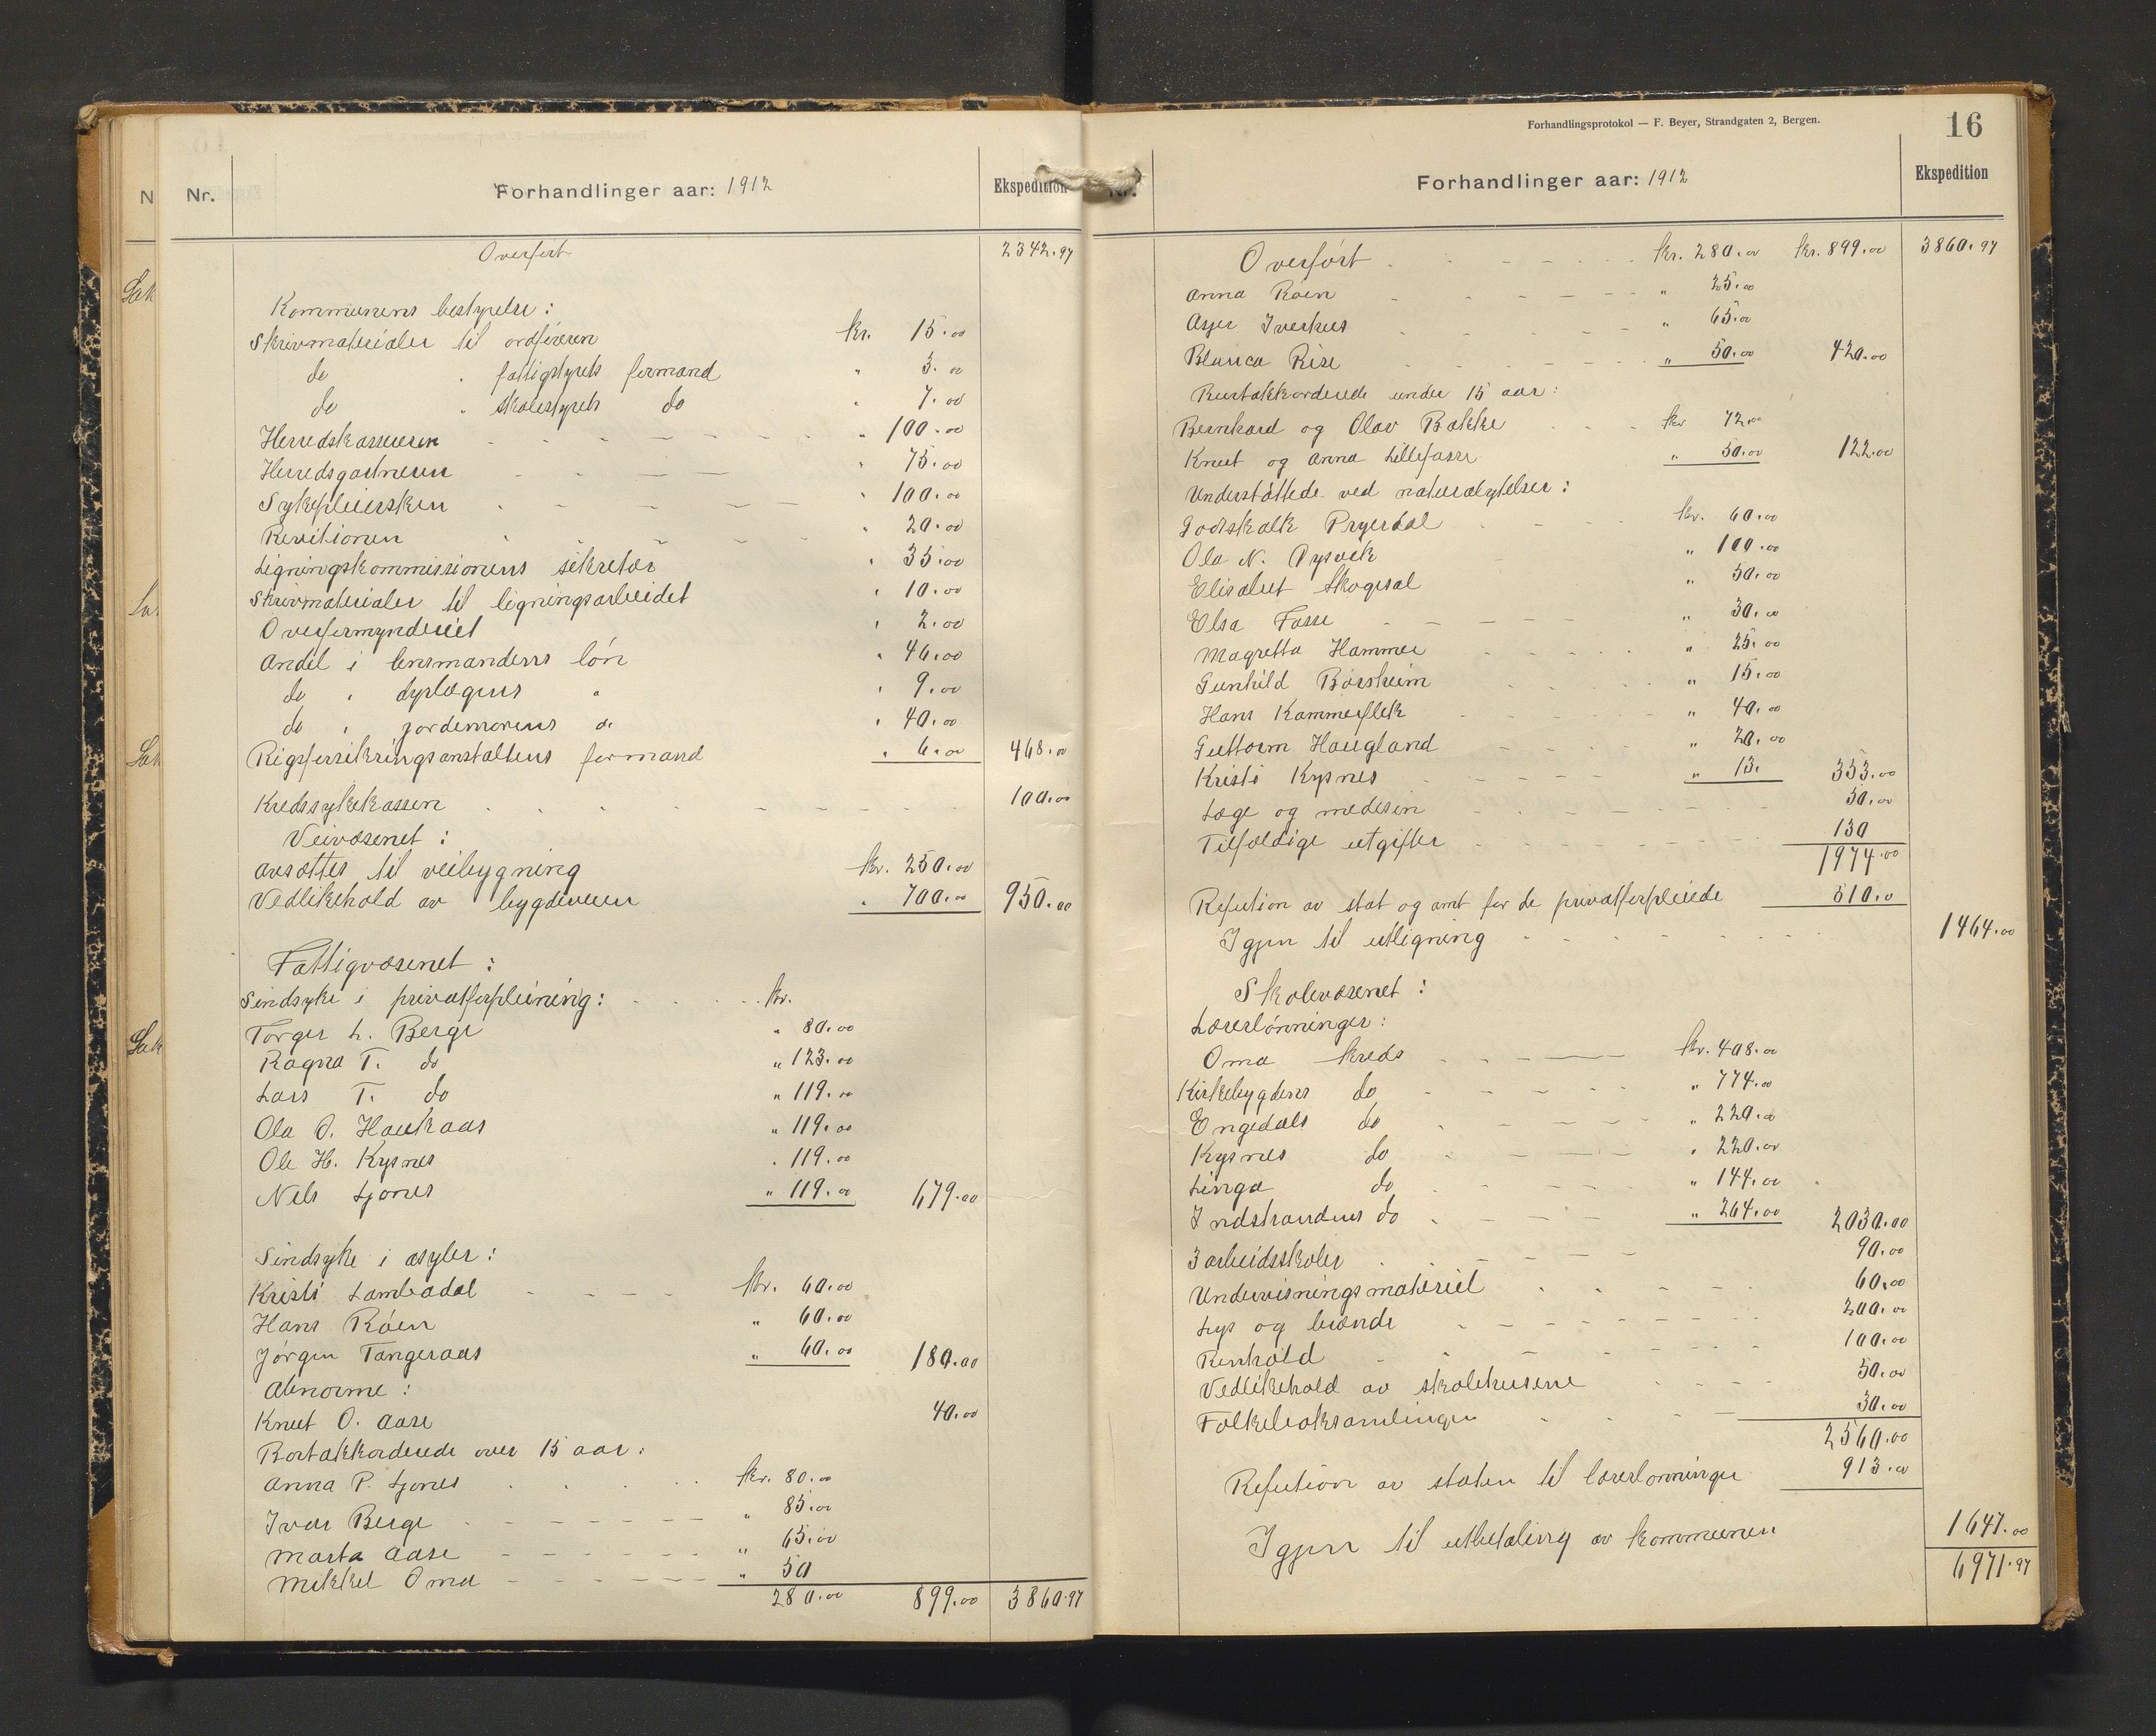 N
Sak
Sak
Sak
Nr.
Forhandlinger aar: 1912
Ekspedition
Overført 2342.97
Kommunens bestyrelse:
Skrivmaterialer til ordføreren kr. 15.00
do " fattigstyrets formand " 3.00
do " skolestyrets do " 7.00
Herredskassereren " 100.00
Herredsgartneren " 75.00
Sykepleiersken " 100.00
Revisionen " 20.00
Ligningskommissionens sekretær " 35.00
Skrivmaterialer til ligningsarbeidet " 10.00
Overformynderiet " 2.00
Andel i lensmandens løn " 46.00
do " dyrlægens " " 9.00
do " jordemorens " 40.00
Rigsforsikringsanstaltens formand " 6.00 468.00
Kredssykekassen 100.00
Veivæsenet:
Avsættes til veibygning kr. 250.00
Vedlikehold av bygdeveien " 700.00 950.00
Fattigvæsenet:
Sindsyke i privatforpleining: kr.
Torger L. Berge " 80.00
Ragna T. do " 123.00
Lars T. do " 119.00
Ola O. Haukaas " 119.00
Ole H. Kysnes " 119.00
Nils Ljones " 119.00 679.00
Sindsyke i asyler:
Kristi Lambadal kr. 60.00
Hans Røen " 60.00
Jørgen Tangeraas " 60.00 180.00
Abnorme:
Knut O. Aase 40.00
Bortakkorderede over 15 aar:
Anna P. Ljones kr. 80.00
Ivar Berge " 85.00
Marta Aase " 65.00
Mikkel Oma " 50
280.00 899.00 3860.97
Forhandlingsprotokol — F. Beyer, Strandgaten 2, Bergen.
16
Nr.
Forhandlinger aar: 1912
Ekspedition
Overført kr. 280.00 kr. 899.00 3860.97
Anna Røen " 25.00
Iverhus " 65.00
Blanca Rise " 50.00 420.00
Bortakkorderede under 15 aar:
Bernhard og Olav Bakke kr 72.00
Knut og Anna Lillefosse " 50.00 122.00
Understøttede ved naturalytelser:
Godtskalk kr. 60.00
Ola N. " 100.00
Elisabet Skogsal " 50.00
Elsa Fosse " 30.00
Magretta Hammer " 25.00
Gunhild Børsheim " 15.00
Hans Kammerflek " 40.00
Guttorm Haugland " 20.00
Kristi Kysnes " 13. 353.00
Læge og medesin 50.00
Tilfældige utgifter 130
1974.00
Refution av stat og amt for de privatforpleiede 510.0
Igjen til utligning 1464.00
Skolevæsenet:
Lærerlønninger:
Oma kreds kr. 408.00
Kirkebygdens do " 774.00
Engedals do " 220.00
Kysnes do " 220.00
Linga do " 144.00
Indstrandens do " 264.00 2030.00
3 arbeidsskoler 90.00
Undervisningsmateriel 60.00
Lys og brænde 200.00
Renhold 100.00
Vedlikehold av skolehusene 50.00
Folkeboksamlingen 30.00
2560.00
Refution av staten til lærerlønninger 913.00
Igjen til utbetaling av kommunen 1647.00
6971.97